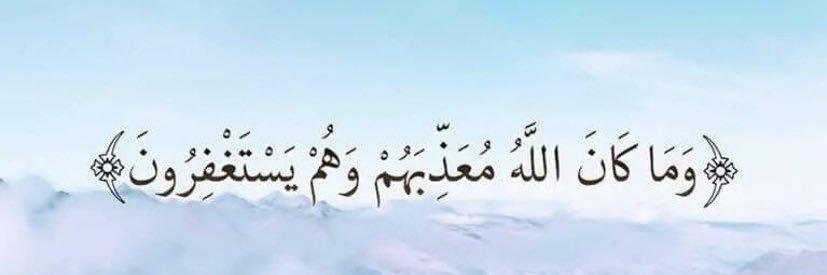 ﴿وَمَا كَانَ اللَّهُ مُعَذِّبَهُمْ وَهُمْ يَسْتَغْفِرُونَ﴾